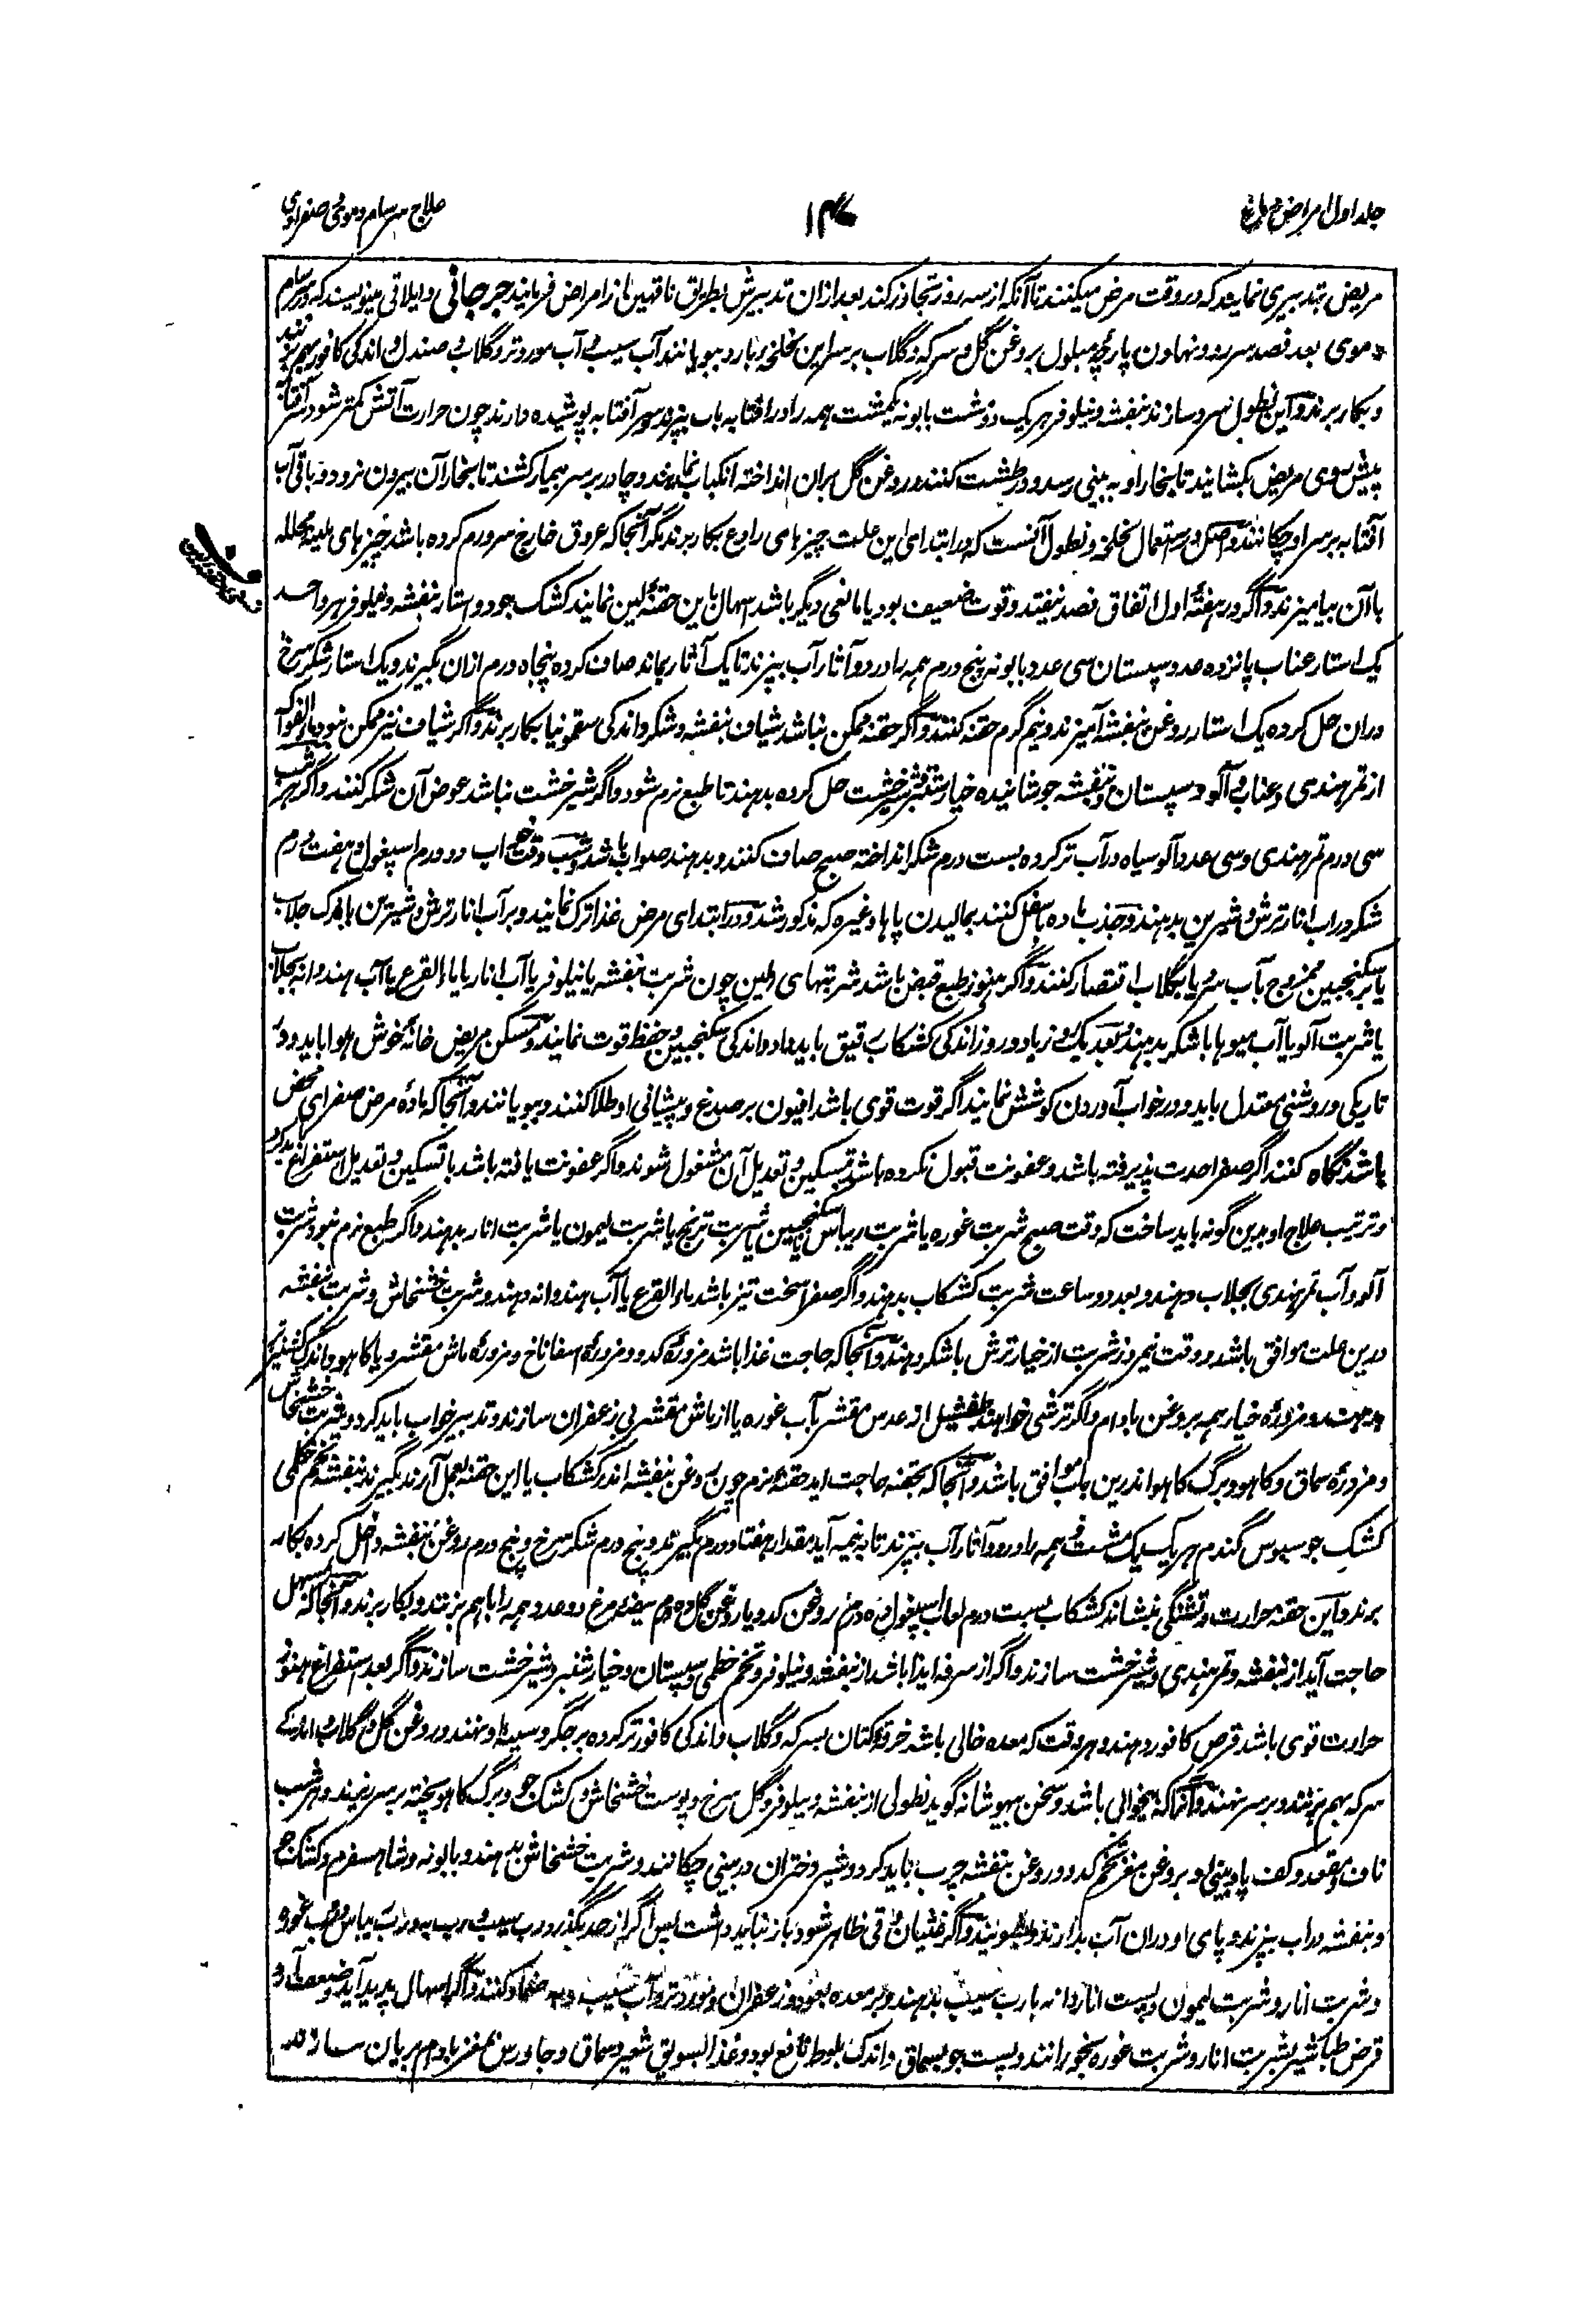 جلد اول امراض دماغ
علاج سرسام دموی و صفراوی
مریض بتدبیری نمایند که در وقت مرض میکنند تا آنکه از سه روز تجاوز کند بعد ازان تدبیرش بطریق ناقهین از امراض فرمایند جرجانی و ایلاقی مینویسند که در سرسام
دموی بعد فصد سررو و نهادن پارچه مبلول بروغن گل و سرکه و گلاب بر سر این لخلخه بارد ببویانند آب سیب و آب مورد تر و گلاب و صندل و اندکی کافور بهم زنند
و بکار برند و این نطول بهر او سازند بنفشه و نیلوفر هر یک دو مشت بابونه یکمشت همه را در آفتابه بآب بپزند و سر آفتابه پوشیده دارند چون حرارت آتش کمتر شود سر آفتابه
پیش روی مریض بکشایند تا بخار او به بینی رسد و در طشت کنند و روغن گل بران انداخته انکباب نمایند و چادر بر سر بیمار کشند تا بخار آن بیرون نرود و باقی آب
آفتابه بر سر او چکانند و اصل در استعمال لخلخه و نطول آنست که در ابتدای این علت چیزهای رادع بکار برند مگر آنجا که عروق خارج سر ورم کرده باشد چیزهای ملینه محلله
با آن بیامیزند و اگر در هفته اول اتفاق فصد نیفتد و قوت ضعیف بود یا مانعی دیگر باشد اسهال باین حقنه لین نمایند کشک جو دو استار بنفشه و نیلوفر هر واحد
یک استار عناب پانزده عدد سپستان سی عدد بابونه پنج درم همه را در دو آثار آب بپزند تا یک آثار بماند صاف کرده پنجاه درم ازان بگیرند و یک استار شکر سرخ
دران حل کرده یک استار روغن بنفشه آمیزند و نیم گرم حقنه کنند و اگر حقنه ممکن نباشد شیاف بنفشه و شکر و اندکی سقمونیا بکار برند و اگر شیاف نیز ممکن نبود ماء الفواکه
از تمر هندی و عناب و آلو و سپستان و بنفشه جوشانیده خیارشنبر و شیرخشت حل کرده بدهند تا طبع نرم شود و اگر شیرخشت نباشد عوض آن شکر کنند و اگر هر شب
سی درم تمر هندی و سی عدد آلو سیاه در آب تر کرده بست درم شکر انداخته صبح صاف کنند و بدهند صواب باشد و شب وقت خواب دو درم اسپغول و هفت درم
شکر در آب انار ترش و شیرین بدهند و جذب ماده باسفل کنند بمالیدن پاها و غیره که مذکور شد و در ابتدای مرض غذا ترک نمایند و بر آب انار ترش و شیرین با اندک جلاب
یا سکنجبین ممزوج بآب سرد یا بگلاب اقتصار کنند و اگر هنوز طبع قبض باشد شربتهای ملین چون شربت بنفشه یا نیلوفر یا آب انار یا ماء القرع یا آب هندوانه بجلاب
یا شربت آلو یا آب میوها با شکر بدهند و بعد یک و زیاده روز اندکی کشکاب رقیق باید داد و اندکی سکنجبین و حفظ قوت نمایند و مسکن مریض خانه خوش هوا باید و در
تاریکی و روشنی معتدل باید و در خواب آوردن کوشش نمایند اگر قوت قوی باشد افیون بر صدغ و پیشانی او طلا کنند و ببویانند و آنجا که ماده مرض صفرای محض
باشد نگاه کنند اگر صفرا حدت پذیرفته باشد و عفونت قبول نکرده باشد بتسکین و تعدیل آن مشغول شوند و اگر عفونت یافته باشد با تسکین و تعدیل استفراغ باید کرد
و ترتیب علاج او بدین گونه باید ساخت که وقت صبح شربت غوره یا شربت ریباس یا سکنجبین یا شربت ترنج یا شربت لیمون یا شربت انار بدهند و اگر طبع نرم نبود شربت
آلو و آب تمر هندی بجلاب دهند و بعد دو ساعت شربت کشکاب بدهند و اگر صفرا سخت تیز باشد ماء القرع یا آب هندوانه دهند و شربت خشخاش و شربت بنفشه
درین علت موافق باشد و وقت نیمروز شربت از خیار ترش با شکر دهند و آنجا که حاجت غذا باشد مزوره کدو و مزوره اسفاناخ و مزوره ماش مقشر و یا کاهو و اندک کشنیز
بدهند و مزوره خیار همه بروغن بادام و اگر ترشی خواهند طفشیل از عدس مقشر بآب غوره یا از ماش مقشر بی زعفران سازند و تدبیر خواب باید کرد و شربت خشخاش
و مزوره سماق و کاهو و برگ کاهو اندرین باب موافق باشد و آنجا که بحقنه حاجت آید حقنه نرم چون روغن بنفشه اندر کشکاب یا این حقنه بعمل آرند بگیرند بنفشه تخم خطمی
کشک جو سبوس گندم هر یک یک مشت همه را در دو آثار آب بپزند تا به نیمه آید مقدار هفتاد درم بگیرند و پنج درم شکر سرخ و پنج درم روغن بنفشه داخل کرده بکار
برند و این حقنه حرارت و تشنگی بنشاند کشکاب بیست درم لعاب اسپغول ده درم روغن کدو یا روغن گل ده درم سپیده مرغ دو عدد همه را باهم بزنند و بکار برند و آنجا که بمسهل
حاجت آید از بنفشه و تمر هندی و شیرخشت سازند و اگر از سرفه ایذا باشد از بنفشه و نیلوفر و تخم خطمی و سپستان و خیارشنبر و شیرخشت سازند و اگر بعد استفراغ هنوز
حرارت قوی باشد قرص کافور دهند و هر وقت که معده خالی باشد خرقه کتان بسرکه و گلاب و اندکی کافور تر کرده بر جگر و سینه او نهند و روغن گل و گلاب و اندکی
سرکه بهم زنند و بر سر نهند و آنجا که بیخوابی باشد و سخن بیهوشانه گوید نطولی از بنفشه و نیلوفر و گل سرخ و پوست خشخاش و کشک جو و برگ کاهو پخته بر سر ریزند و هر شب
ناف و مقعد و کف پا و بینی او بروغن مغز تخم کدو و روغن بنفشه چرب باید کرد و شیر دختران در بینی چکانند و شربت خشخاش بدهند و بابونه و شاهسفرم و کشک جو
و بنفشه در آب بپزند و پای او دران آب بدارند و بشویند و اگر غثیان و قی ظاهر شود باز نباید داشت پس اگر از حد بگذرد رب سیب و رب به و رب ریباس و رب غوره
و شربت انار و شربت لیمون و پست اناردانه با رب سیب بدهند و بر معده بعود و زعفران و مورد تر و آب سیب و به ضماد کنند و اگر اسهال پدید آید و ضعف آرد
قرص طباشیر بشربت انار و شربت غوره بخورانند و پست جو بسماق و اندک بلوط نافع بود و غذا بسویق شعیر و سماق و جاورس بمغز بادام بریان سازند